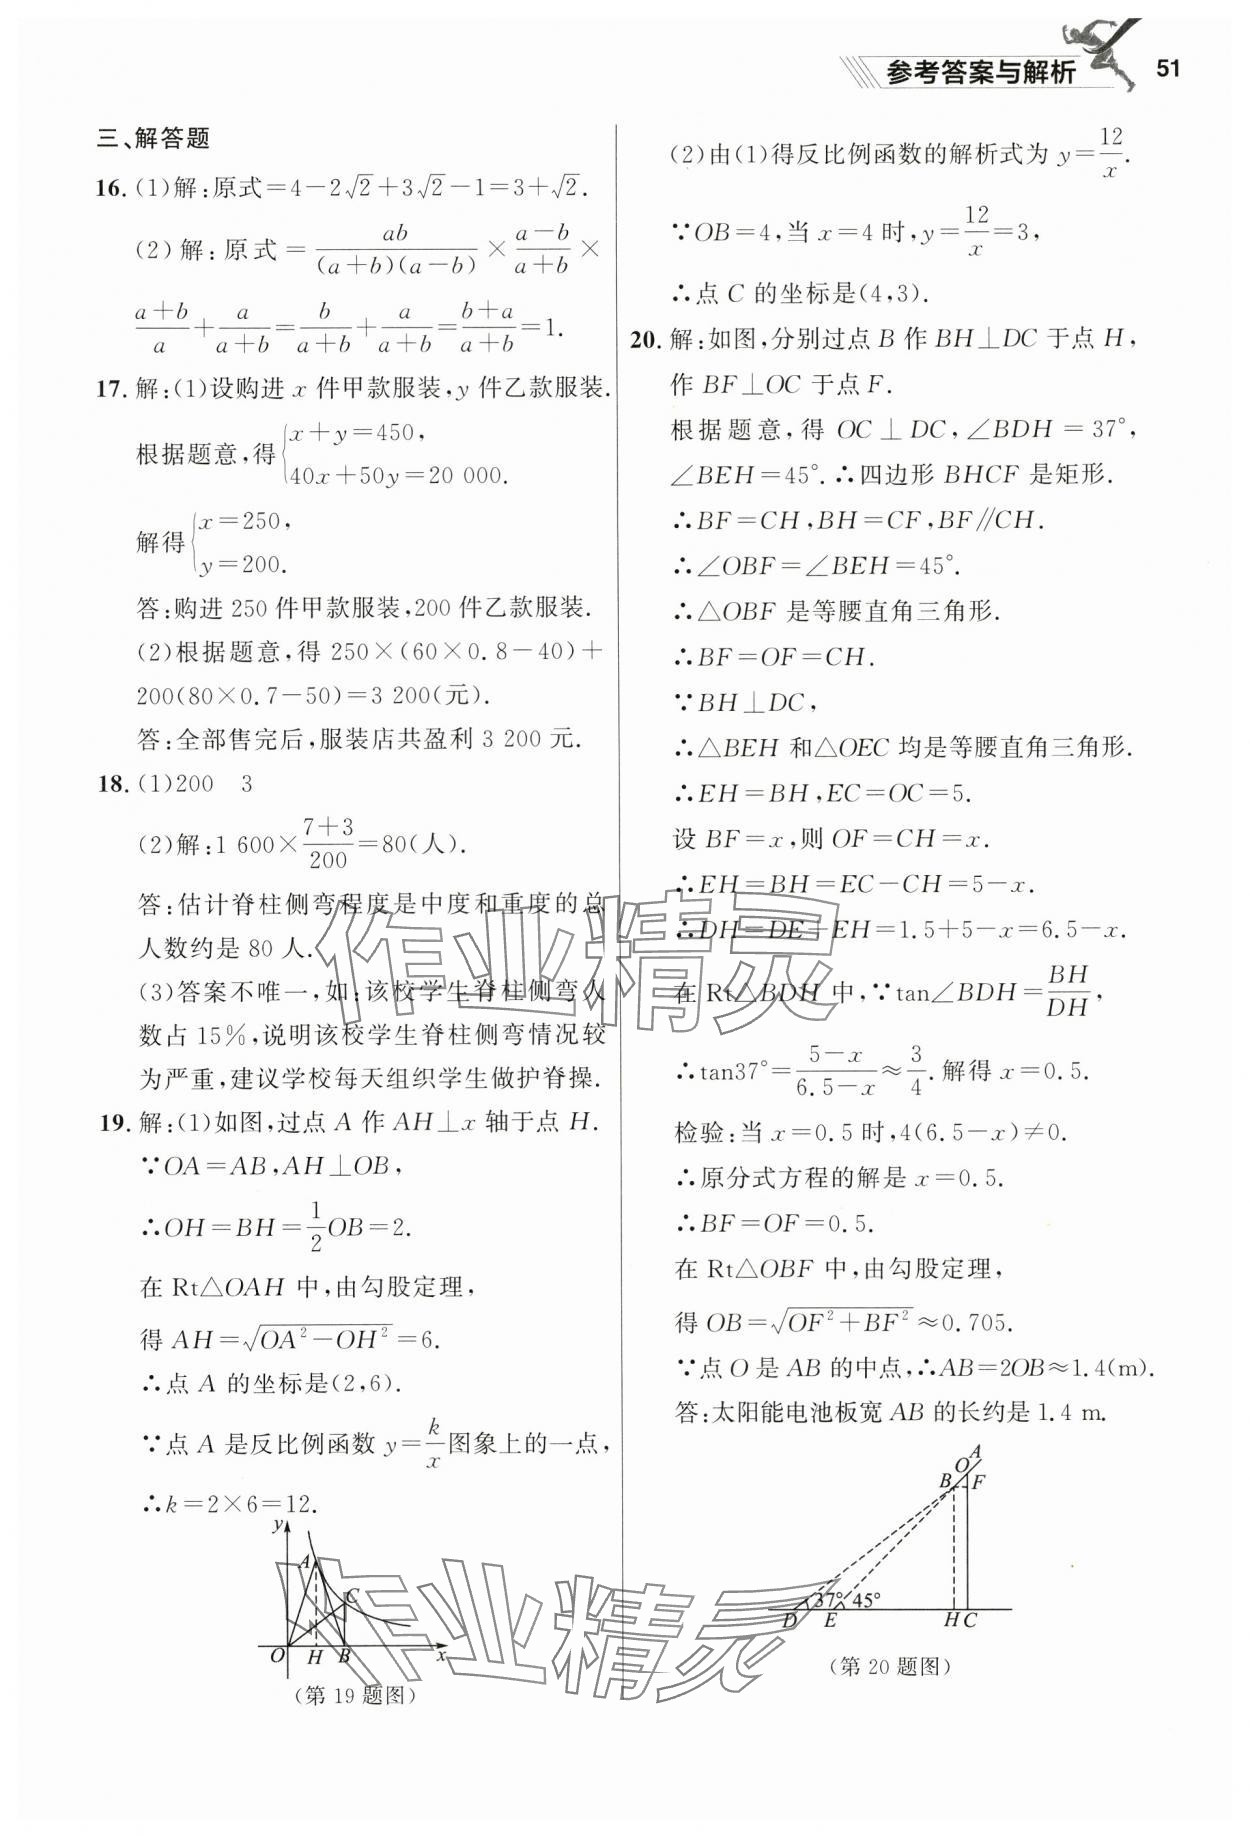 参考答案与解析 51
三、解答题
16. (1)解:原式=4-2√2+3√2-1=3+√2.
(2)解:原式=ab/((a+b)(a-b))×(a-b)/(a+b)×
(a+b)/a+a/(a+b)=b/(a+b)+a/(a+b)=(b+a)/(a+b)=1.
17. 解:(1)设购进 x 件甲款服装,y 件乙款服装.
根据题意,得{x+y=450,
40x+50y=20 000.
解得{x=250,
y=200.
答:购进 250 件甲款服装,200 件乙款服装.
(2)根据题意,得 250×(60×0.8-40)+
200(80×0.7-50)=3 200(元).
答:全部售完后,服装店共盈利 3 200 元.
18. (1)200 3
(2)解:1 600×(7+3)/200=80(人).
答:估计脊柱侧弯程度是中度和重度的总
人数约是 80 人.
(3)答案不唯一,如:该校学生脊柱侧弯人
数占 15%,说明该校学生脊柱侧弯情况较
为严重,建议学校每天组织学生做护脊操.
19. 解:(1)如图,过点 A 作 AH⊥x 轴于点 H.
∵OA=AB,AH⊥OB,
∴OH=BH=1/2OB=2.
在 Rt△OAH 中,由勾股定理,
得 AH=√(OA²-OH²)=6.
∴点 A 的坐标是(2,6).
∵点 A 是反比例函数 y=k/x图象上的一点,
∴k=2×6=12.
y
A
C
O H B x
(第 19 题图)
(2)由(1)得反比例函数的解析式为 y=12/x.
∵OB=4,当 x=4 时,y=12/x=3,
∴点 C 的坐标是(4,3).
20. 解:如图,分别过点 B 作 BH⊥DC 于点 H,
作 BF⊥OC 于点 F.
根据题意,得 OC⊥DC,∠BDH=37°,
∠BEH=45°.∴四边形 BHCF 是矩形.
∴BF=CH,BH=CF,BF∥CH.
∴∠OBF=∠BEH=45°.
∴△OBF 是等腰直角三角形.
∴BF=OF=CH.
∵BH⊥DC,
∴△BEH 和△OEC 均是等腰直角三角形.
∴EH=BH,EC=OC=5.
设 BF=x,则 OF=CH=x.
∴EH=BH=EC-CH=5-x.
∴DH=DE+EH=1.5+5-x=6.5-x.
在 Rt△BDH 中,∵tan∠BDH=BH/DH,
∴tan37°=(5-x)/(6.5-x)≈3/4.解得 x=0.5.
检验:当 x=0.5 时,4(6.5-x)≠0.
∴原分式方程的解是 x=0.5.
∴BF=OF=0.5.
在 Rt△OBF 中,由勾股定理,
得 OB=√(OF²+BF²)≈0.705.
∵点 O 是 AB 的中点,∴AB=2OB≈1.4(m).
答:太阳能电池板宽 AB 的长约是 1.4 m.
A
O
B F
37° 45°
D E H C
(第 20 题图)
作业精灵
作业精灵